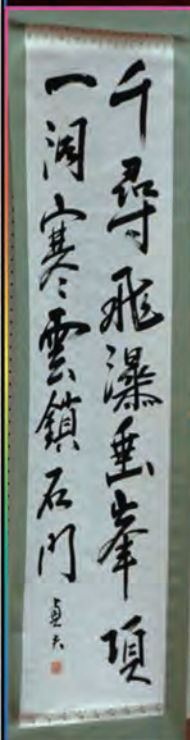 千尋飛瀑垂峯頂
一澗寒雲鎖石門